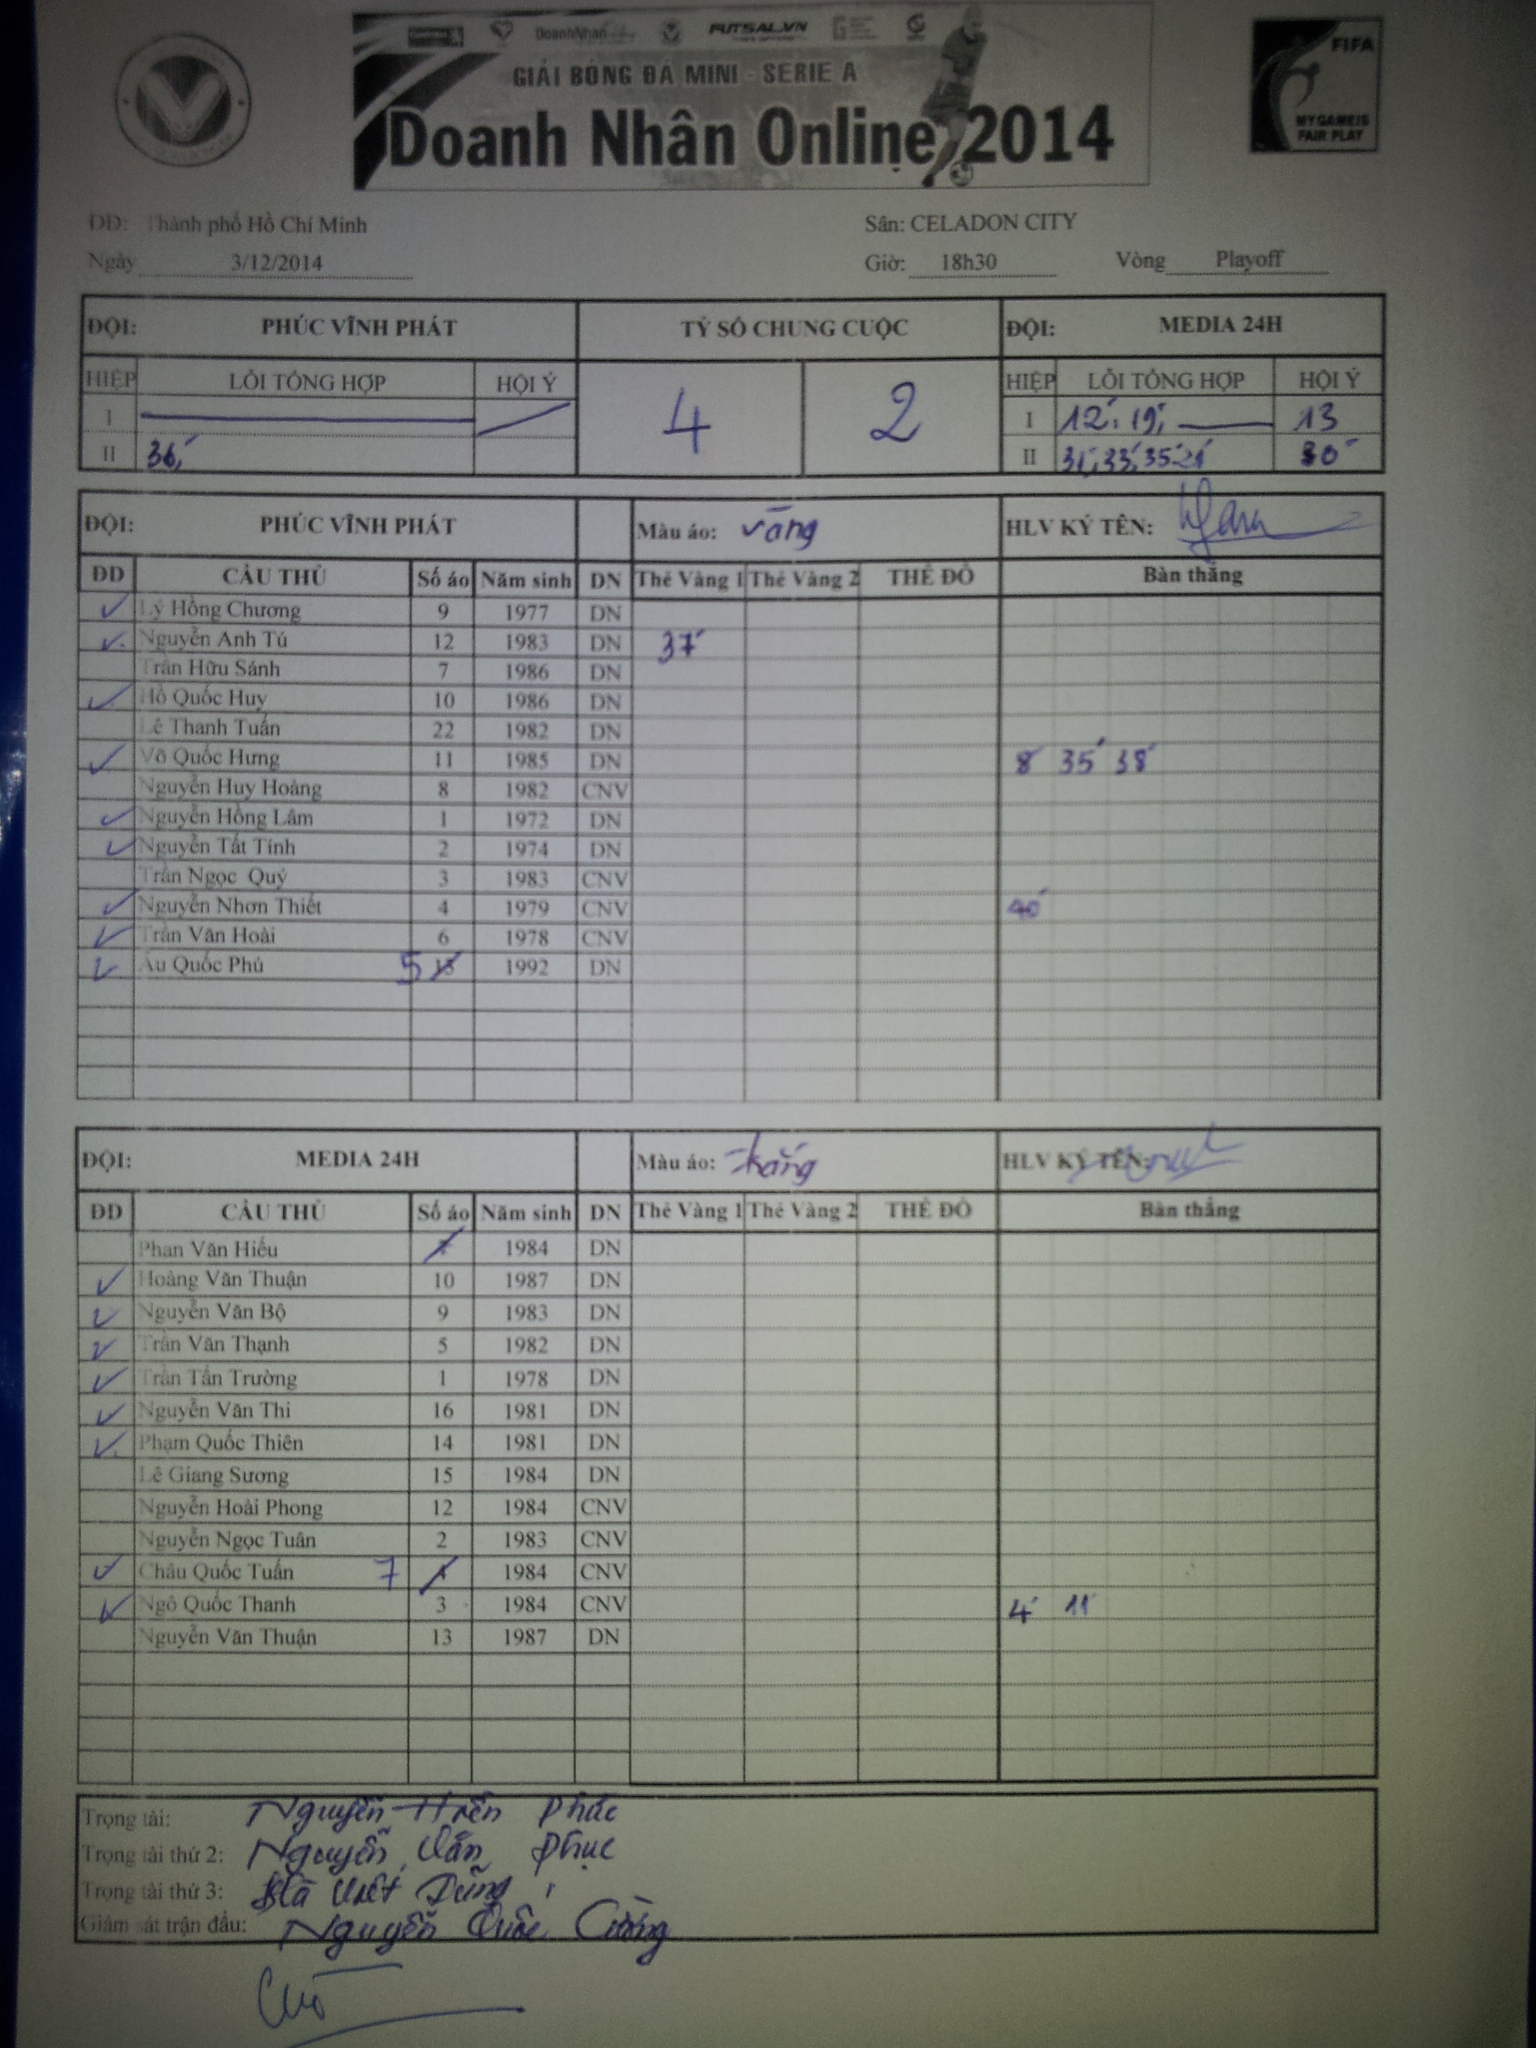 DoanhNhân FUTSAL.VN
GIẢI BÓNG ĐÁ MINI - SERIE A
Doanh Nhân Online 2014
FIFA
MY GAME IS
FAIR PLAY
DĐ: Thành phố Hồ Chí Minh Sân: CELADON CITY
Ngày 3/12/2014 Giờ: 18h30 Vòng Playoff
ĐỘI: PHÚC VĨNH PHÁT TỶ SỐ CHUNG CUỘC ĐỘI: MEDIA 24H
HIỆP LỖI TỔNG HỢP HỘI Ý 4 2 HIỆP LỖI TỔNG HỢP HỘI Ý
I I 12' 19' 13
II 36' II 31' 33' 35' 30'
ĐỘI: PHÚC VĨNH PHÁT Màu áo: vàng HLV KÝ TÊN:
ĐD CẦU THỦ Số áo Năm sinh DN Thẻ Vàng 1 Thẻ Vàng 2 THẺ ĐỎ Bàn thắng
✓ Lý Hồng Chương 9 1977 DN
✓ Nguyễn Anh Tú 12 1983 DN 37'
Trần Hữu Sánh 7 1986 DN
✓ Hồ Quốc Huy 10 1986 DN
Lê Thanh Tuấn 22 1982 DN
✓ Võ Quốc Hưng 11 1985 DN 8' 35' 38'
Nguyễn Huy Hoàng 8 1982 CNV
✓ Nguyễn Hồng Lâm 1 1972 DN
✓ Nguyễn Tất Tính 2 1974 DN
Trần Ngọc Quý 3 1983 CNV
✓ Nguyễn Nhơn Thiết 4 1979 CNV 40'
✓ Trần Văn Hoài 6 1978 CNV
✓ Âu Quốc Phú 5 1992 DN
ĐỘI: MEDIA 24H Màu áo: Trắng HLV KÝ TÊN:
ĐD CẦU THỦ Số áo Năm sinh DN Thẻ Vàng 1 Thẻ Vàng 2 THẺ ĐỎ Bàn thắng
Phan Văn Hiếu 1984 DN
✓ Hoàng Văn Thuận 10 1987 DN
✓ Nguyễn Văn Bộ 9 1983 DN
✓ Trần Văn Thạnh 5 1982 DN
✓ Trần Tấn Trường 1 1978 DN
✓ Nguyễn Văn Thi 16 1981 DN
✓ Phạm Quốc Thiên 14 1981 DN
Lê Giang Sương 15 1984 DN
Nguyễn Hoài Phong 12 1984 CNV
Nguyễn Ngọc Tuân 2 1983 CNV
✓ Châu Quốc Tuấn 7 1984 CNV
✓ Ngô Quốc Thanh 3 1984 CNV 4' 11'
Nguyễn Văn Thuận 13 1987 DN
Trọng tài: Nguyễn Hiền Phúc
Trọng tài thứ 2: Nguyễn Văn Phục
Trọng tài thứ 3: Viết Dũng
Giám sát trận đấu: Nguyễn Quốc Cường